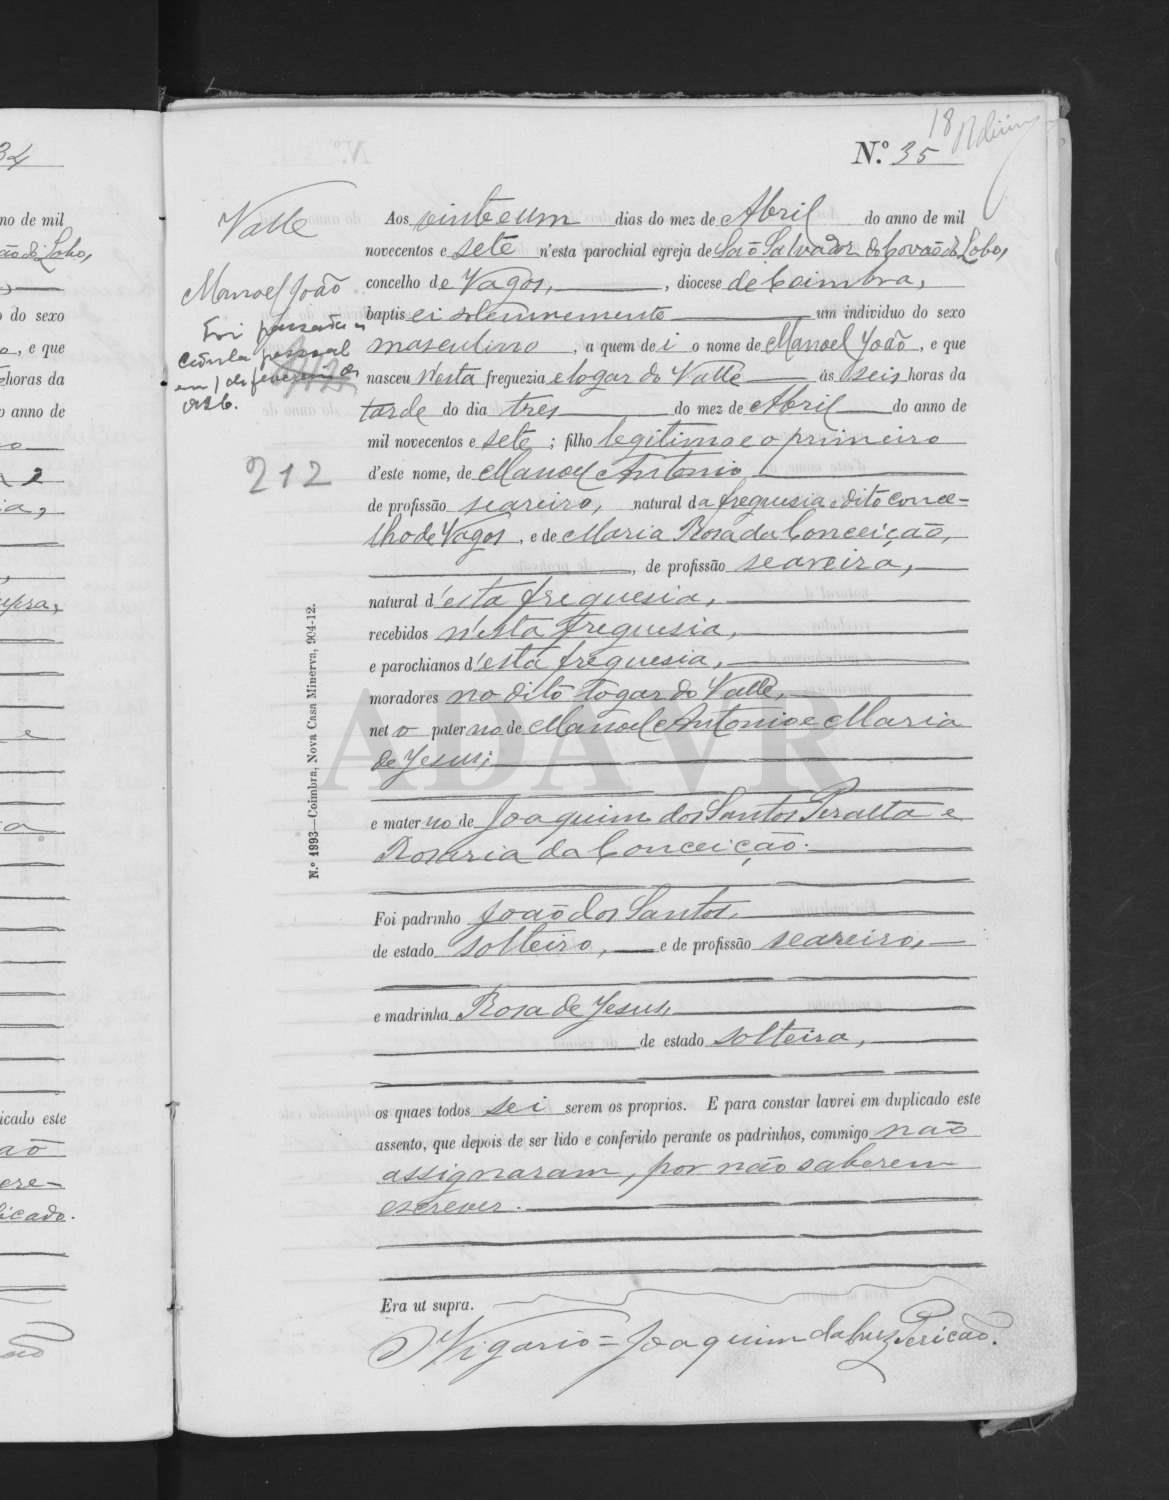 34
no de mil
ão de Lobo,
do sexo
, e que
horas da
o anno de
2
ia,
upra,
e
a
icado este
ão
ere-
licado.
18
N.º 35
Valle
Manoel João
Foi passada a
cedula pessoal
em 1 de fevereiro de
1926.
212
N.º 1993—Coimbra, Nova Casa Minerva, 904-12.
Aos vinte e um dias do mez de Abril do anno de mil
novecentos e sete n'esta parochial egreja de São Salvador do Covão do Lobo,
concelho de Vagos, , diocese de Coimbra,
baptisei solemnemente um individuo do sexo
masculino , a quem dei o nome de Manoel João , e que
nasceu n'esta freguezia e logar do Valle ás seis horas da
tarde do dia tres do mez de Abril do anno de
mil novecentos e sete ; filho legitimo e o primeiro
d'este nome, de Manoel Antonio
de profissão seareiro, natural da freguesia e dito conce-
lho de Vagos , e de Maria Rosa da Conceição,
, de profissão seareira,
natural d'esta freguesia,
recebidos n'esta freguesia,
e parochianos d'esta freguesia,
moradores no dito logar do Valle,
neto paterno de Manoel Antonio e Maria
de Jesus;
e materno de Joaquim dos Santos Peralta e
Rosaria da Conceição.
Foi padrinho João dos Santos,
de estado solteiro, e de profissão seareiro,
e madrinha Rosa de Jesus,
de estado solteira,
os quaes todos sei serem os proprios. E para constar lavrei em duplicado este
assento, que depois de ser lido e conferido perante os padrinhos, commigo não
assignaram, por não saberem
escrever.
Era ut supra.
O Vigario = Joaquim da Cruz Pericão.
ADAVR